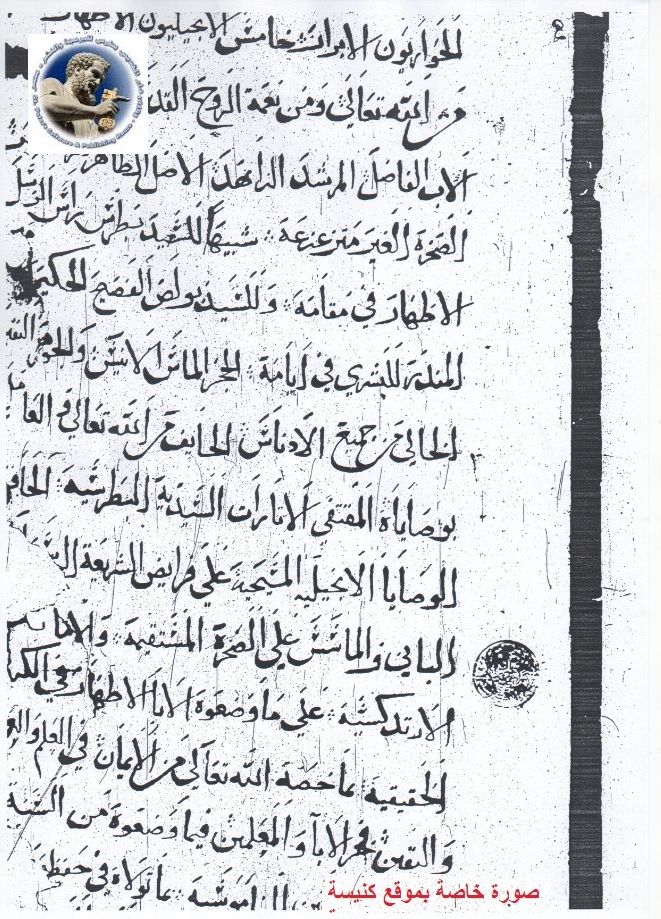 الحواريون الابرار خامس الانجيليون الاطهار
من الله تعالي ومن نعمة الروح القد
الاب الفاضل المرشد الداهد الاصل الطاهر
الصخرة الغير متزعزعة شبيها للسعيد بطرس راس الرسل
الاطهار في مقامه وللسيد بولص الفصيح الحكيم
المنذرة للبشري في ايامة الحجر الماس الاسس والجوهر النقي
الخالي من جميع الادناس الخايف من الله تعالي والعامل
بوصاياة المقتفي الاثارات السيدية البطرسية الحافظ
الوصايا الانجيلية المسيحية علي فرايض الشريعة
الباني والماسس علي الصخرة المستقيمة والامانة
الارتدكسية علي ما وضعوة الابا الاطهار في
الحقيقية بما خصة الله تعالي من الايمان في العلم
واليقين فخر الابا والمعلمين فيما وضعوة من
بما تولاة في حفظة
صورة خاصة بموقع كنيسة